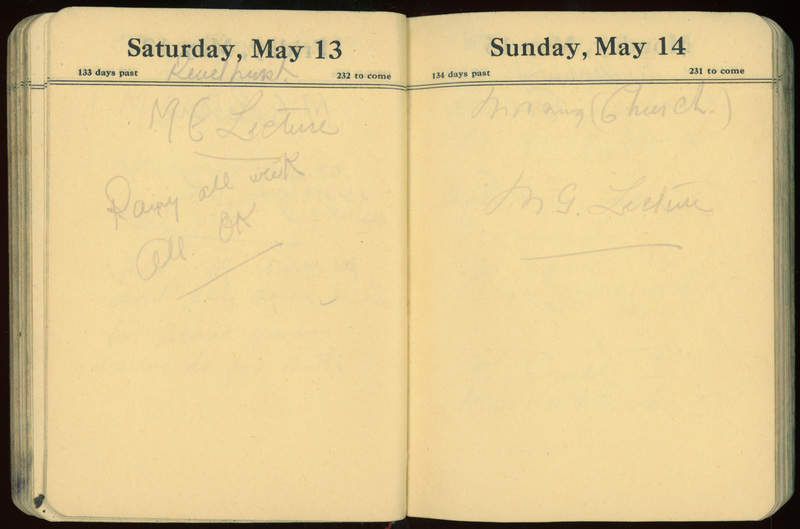 Saturday, May 13
133 days past 232 to come
M G Lecture
Rainy all week
All OK
Sunday, May 14
134 days past 231 to come
Morning (Church.)
M G. Lecture